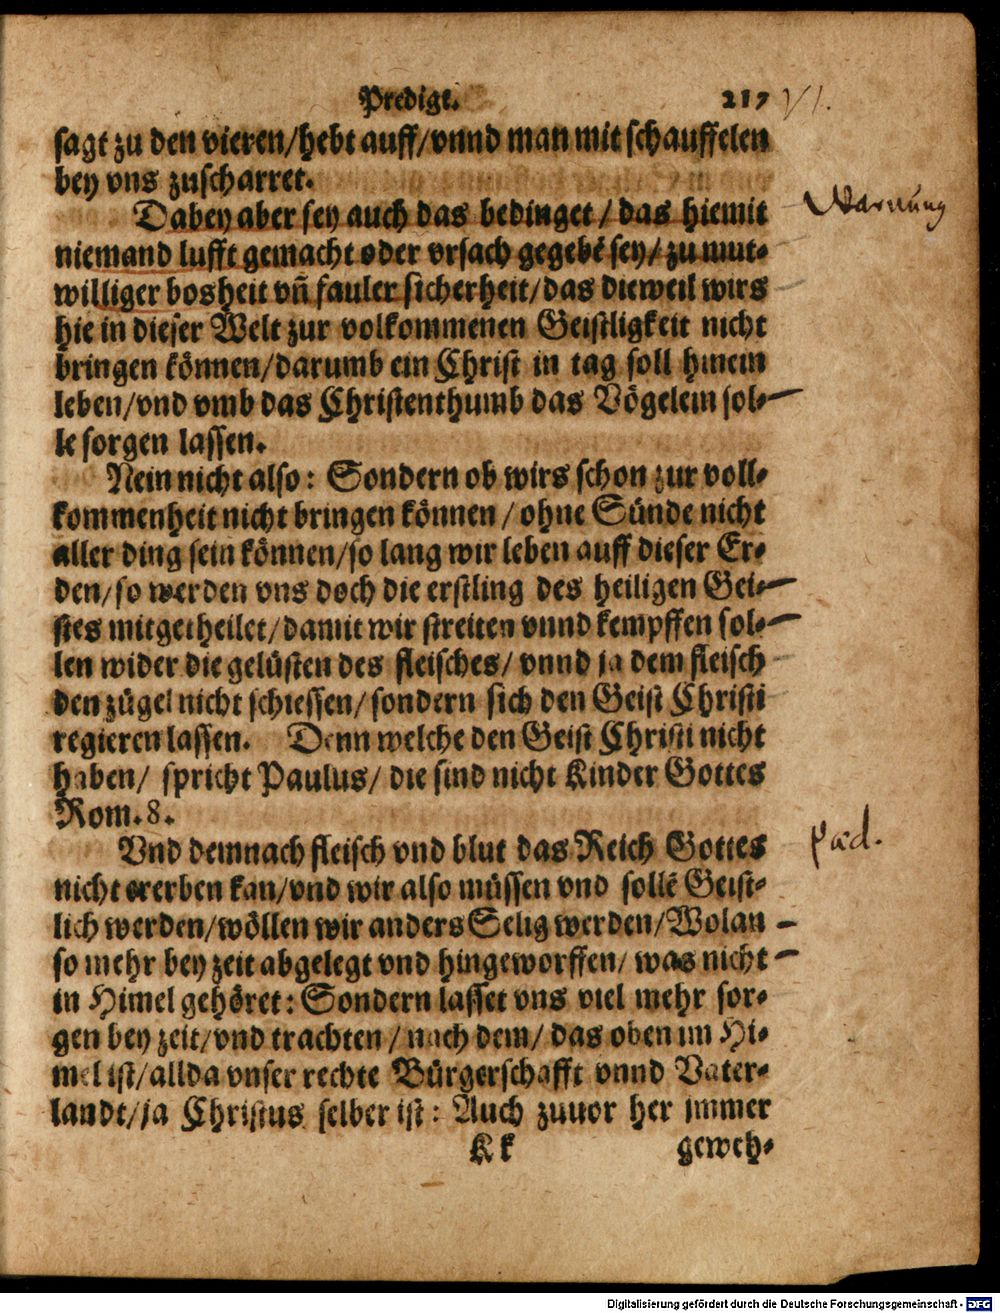 Predigt. 217 VI.
sagt zu den vieren/hebt auff/vnnd man mit schauffelen
bey vns zuscharret.
Dabey aber sey auch das bedinget/das hiemit
Warnung
niemand lufft gemacht oder vrsach gegebē sey/zu mut⸗
williger bosheit vñ fauler sicherheit/das dieweil wirs
hie in dieser Welt zur volkommenen Geistligkeit nicht
bringen können/darumb ein Christ in tag soll hinein
leben/vnd vmb das Christenthumb das Vögelein sol⸗
le sorgen lassen.
Nein nicht also: Sondern ob wirs schon zur voll⸗
kommenheit nicht bringen können/ohne Sünde nicht
aller ding sein können/so lang wir leben auff dieser Er⸗
den/so werden vns doch die erstling des heiligen Gei⸗
stes mitgetheilet/damit wir streiten vnnd kempffen sol⸗
len wider die gelüsten des fleisches/vnnd ja dem fleisch
den zügel nicht schiessen/sondern sich den Geist Christi
regieren lassen. Denn welche den Geist Christi nicht
haben/ spricht Paulus/ die sind nicht Kinder Gottes
Rom.8.
Vnd demnach fleisch vnd blut das Reich Gottes
Pæd.
nicht ererben kan/vnd wir also müssen vnd sollē Geist⸗
lich werden/wöllen wir anders Selig werden/Wolan
so mehr bey zeit abgelegt vnd hingeworffen/ was nicht
in Himel gehöret: Sondern lasset vns viel mehr sor⸗
gen bey zeit/vnd trachten/nach dem/das oben im Hi⸗
mel ist/allda vnser rechte Bürgerschafft vnnd Vater⸗
landt/ja Christus selber ist: Auch zuuor her jmmer
Kk geweh⸗
Digitalisierung gefördert durch die Deutsche Forschungsgemeinschaft - DFG